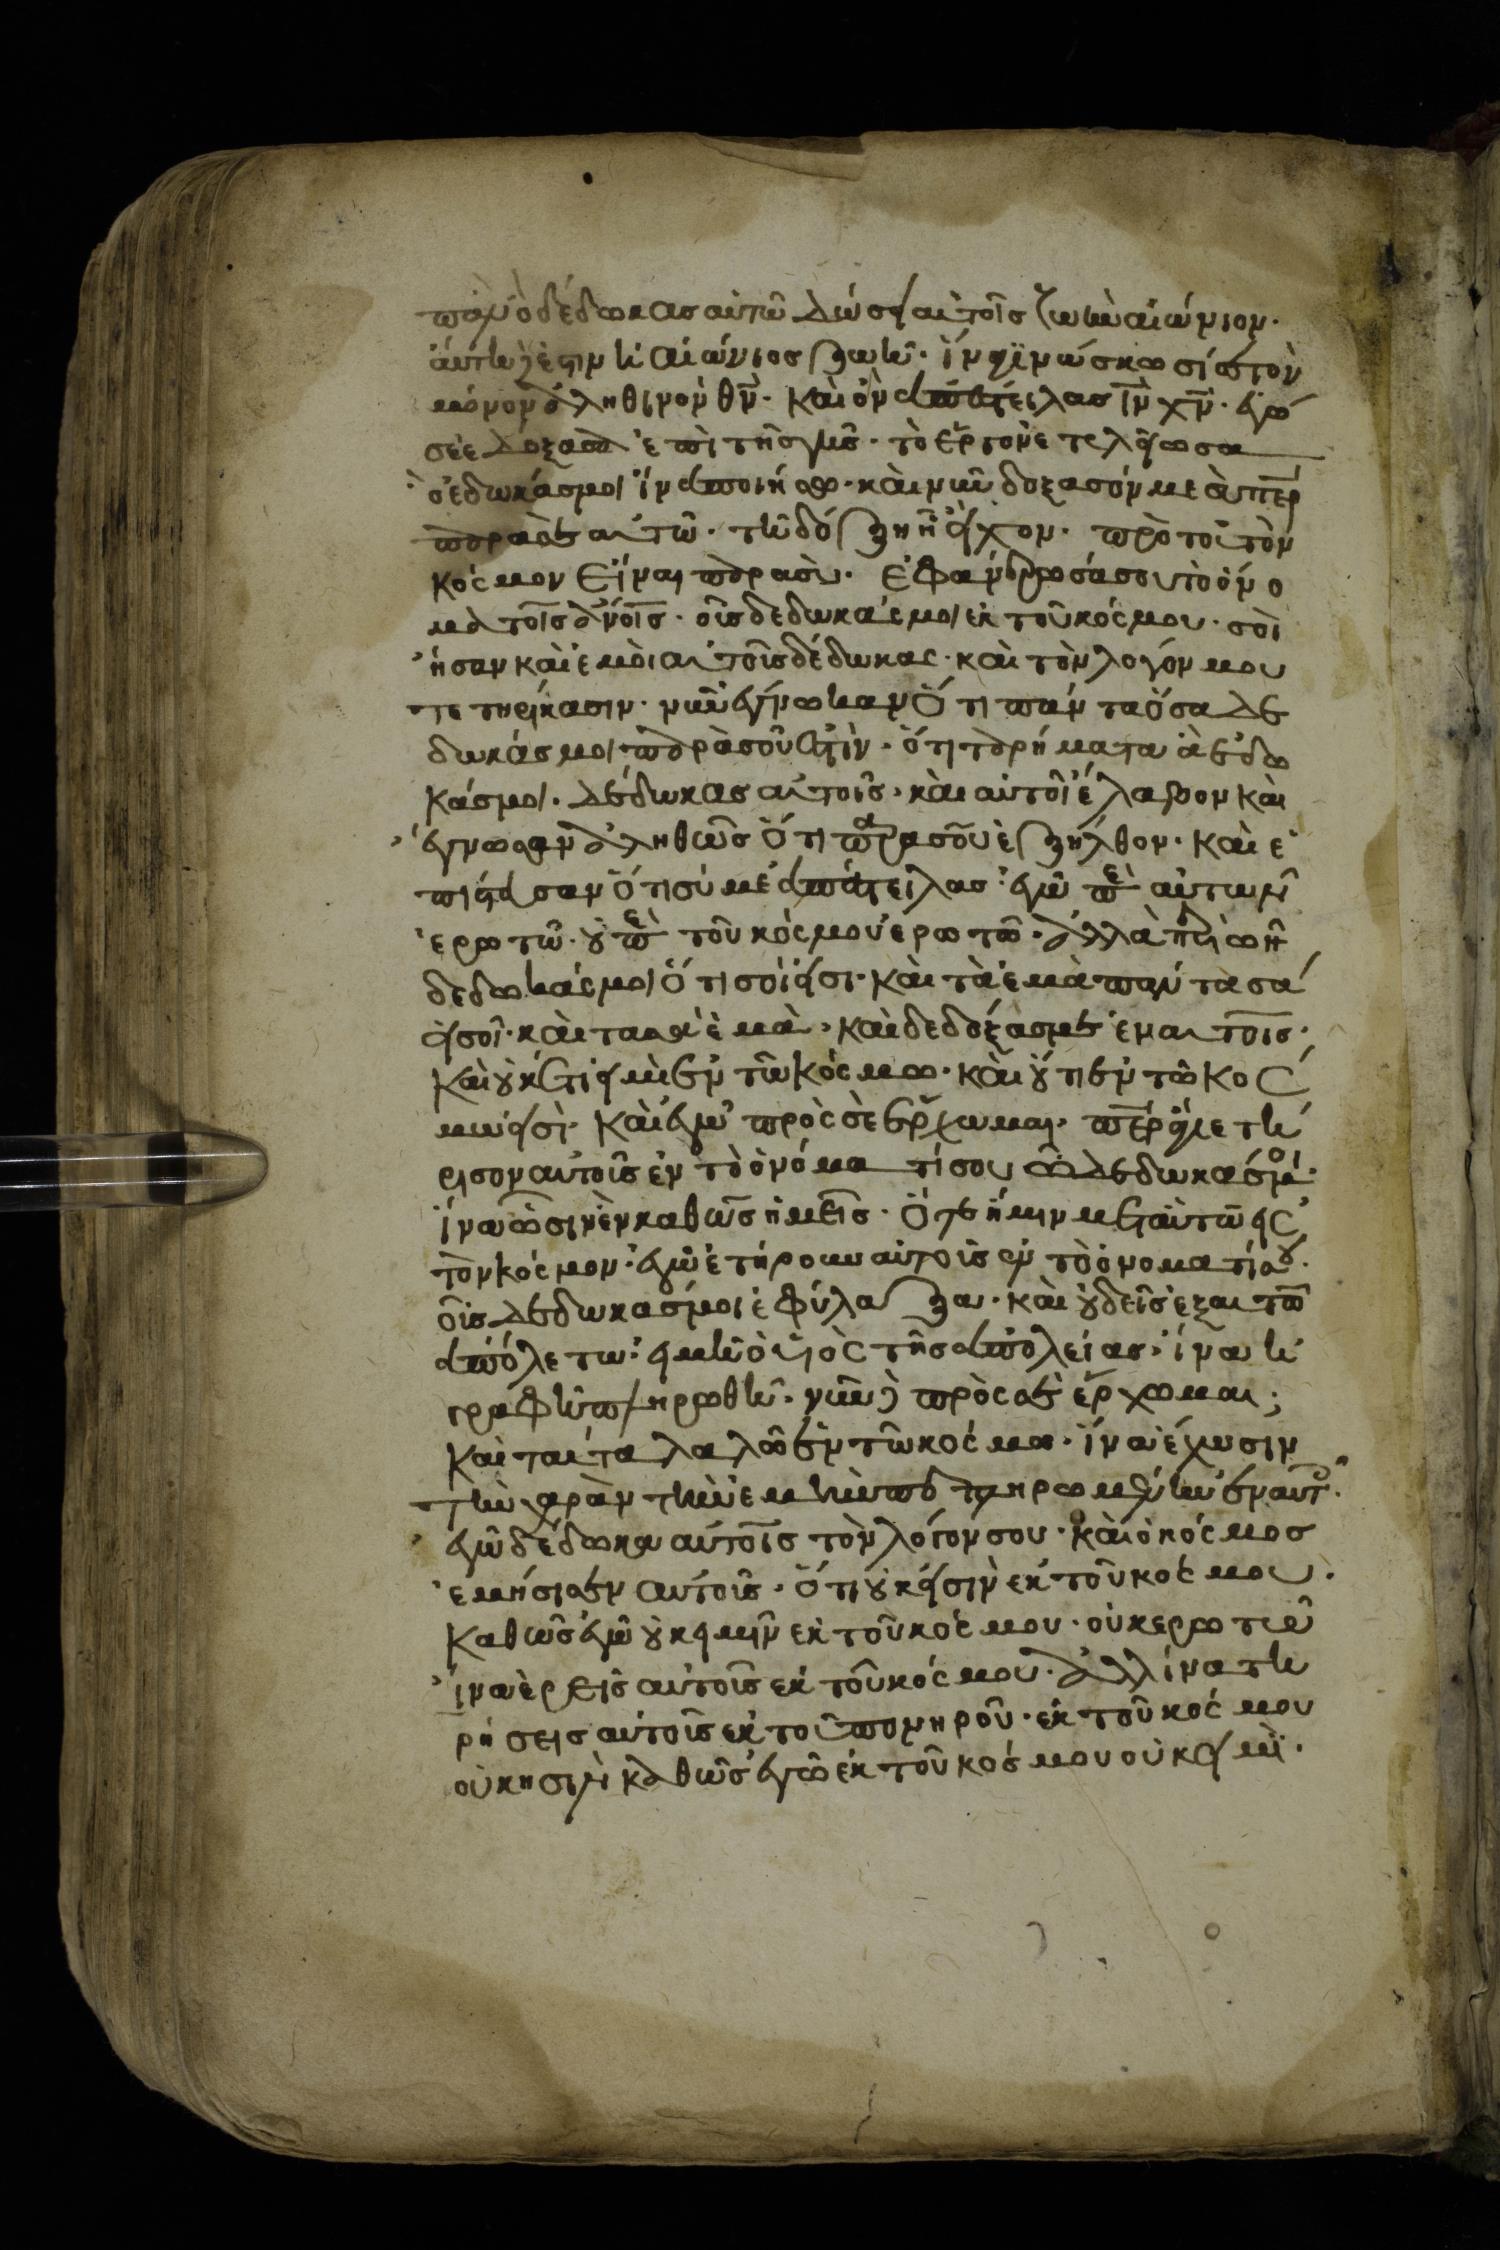 πᾶν ὃ δέδωκας αὐτῶ δώσει αὐτοῖς ζωὴν αἰώνιον·
αὕτη δέ ἐστιν ἡ αἰώνιος ζωὴ· ἵνα γινώσκωσί σε τὸν
μόνον ἀληθινὸν θν̅· καὶ ὃν ἀπέστειλας ιν̅ χν̅· ἐγώ
σὲ ἐδοξασα ἐπὶ τῆς γῆς· τὸ ἔργον ἐτελείωσα
ὃ δέδωκάς μοι ἵνα ποιήσω· καὶ νῦν δοξασόν με σὺ περ
παρὰ σε αυτῶ· τῆ δόξη ἧ εἶχον· πρὸ τοῦ τὸν
κόσμον εἶναι παρα σοὶ· Ἐφανέρωσά σου τὸ ὄνο
μα τοῖς ἀνοῖς· οἷς δέδωκάς μοι ἐκ τοῦ κόσμου· σοὶ
ἦσαν καὶ ἐμοὶ αυτοῖς δέδωκας· καὶ τὸν λογόν μου
τετηρίκασιν· νῦν ἔγνωκαν ὅτι πάντα ὅσα δε
δωκάς μοι παρὰ σοῦ ἐστὶν· ὅτι τὰ ρήματα ἃ δέδω
κάς μοι· δέδωκας αυτοῖς· καὶ αὐτοὶ ἔλαβον καὶ
ἔγνωσαν ἀληθῶς ὅτι παρα σοῦ ἐξήλθον· καὶ ἐ
πίστευσαν ὅτι σύ με ἀπέστειλας· ἐγὼ περὶ αὐτων
ἐρωτῶ· οὐ περὶ τοῦ κόσμου ἐρωτῶ· ἀλλὰ περὶ ὧν
δέδωκάς μοι ὅτι σοί εἰσι· καὶ τὰ ἐμὰ πάντα σά
εἰσοῖ· καὶ τα σὰ ἐμὰ· καὶ δεδόξασμαι ἐν αυτοῖς·
καὶ οὐκ ἔτι εἰμὶ ἐν τῶ κόσμω· καὶ οὗτι ἐν τῶ κοσ
μω εἰσὶ· καὶ ἐγὼ πρὸς σὲ ἔρχωμαι· περ ἅγιε τή
ρισον αυτοῖς ἐν τὸ ὀνόματί σου ὧ δέδωκάς μοι·
ἵνα ὦσιν ἓν καθῶς ἡμεῖς· Ὅτε ἤμιν μετ αὐτῶν εἰς
τὸν κόσμον· ἐγὼ ἐτήρουν αὐτοῖς ἐν τὸ ὀνοματί σου·
οἷς δέδωκάς μοι ἐφύλαξα· καὶ οὐδεῖς ἐξ αυτῶν
ἀπόλετω· εἰμὴ ὁ υἱὸς τῆς ἀπολείας· ἵνα ἡ
γραφὴ πληρωθῆ· νῦν δὲ πρὸς σὲ ἔρχωμαι;
καὶ ταῦτα λαλῶ ἐν τῶ κόσμω· ἵνα ἔχωσιν
τὴν χαρὰν τὴν ἐμὴν πεπληρωμένην ἐν αυτοῖς·
ἐγὼ δέδωκα αὐτοῖς τὸν λόγον σου· καὶ ὁ κόσμος
ἐμήσισεν αὐτοῖς· ὅτι οὐκ εἰσὶν ἐκ τοῦ κόσμου·
καθῶς ἐγὼ οὐκ ειμὶν ἐκ τοῦ κόσμου· οὐκ ερωτῶ
ἵνα ἐρεῖς αὐτοῖς ἐκ τοῦ κόσμου· ἀλλ ίνα τη
ρήσεις αὐτοῖς ἐκ τοῦ πονηροῦ· ἐκ τοῦ κόσμου
οὐκ ησιν καθῶς ἐγὼ ἐκ τοῦ κόσμου οὐκ εἰμὶ·